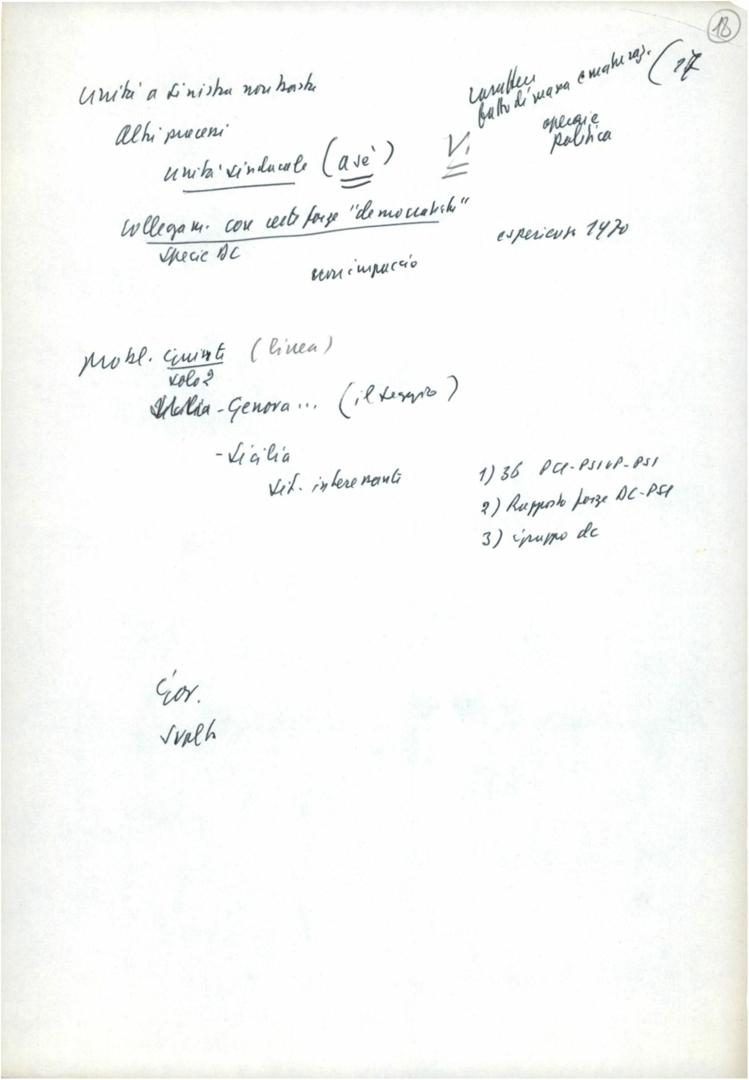 13
(17
Unità a sinistra non basta
caratteri
lotte di massa e maturaz.
operaia
politica
Altri processi
unità sindacale (a sé)
V.
Collegam. con certe forze "democratiche"
specie DC
esperienza 1970
non impaccio
Probl. Giunte (linea)
solo 2
Genova... (il seggio)
- Sicilia
sit. interessanti
1) 36 PCI-PSIUP-PSI
2) Rapporto forze DC-PSI
3) gruppo dc
Gov.